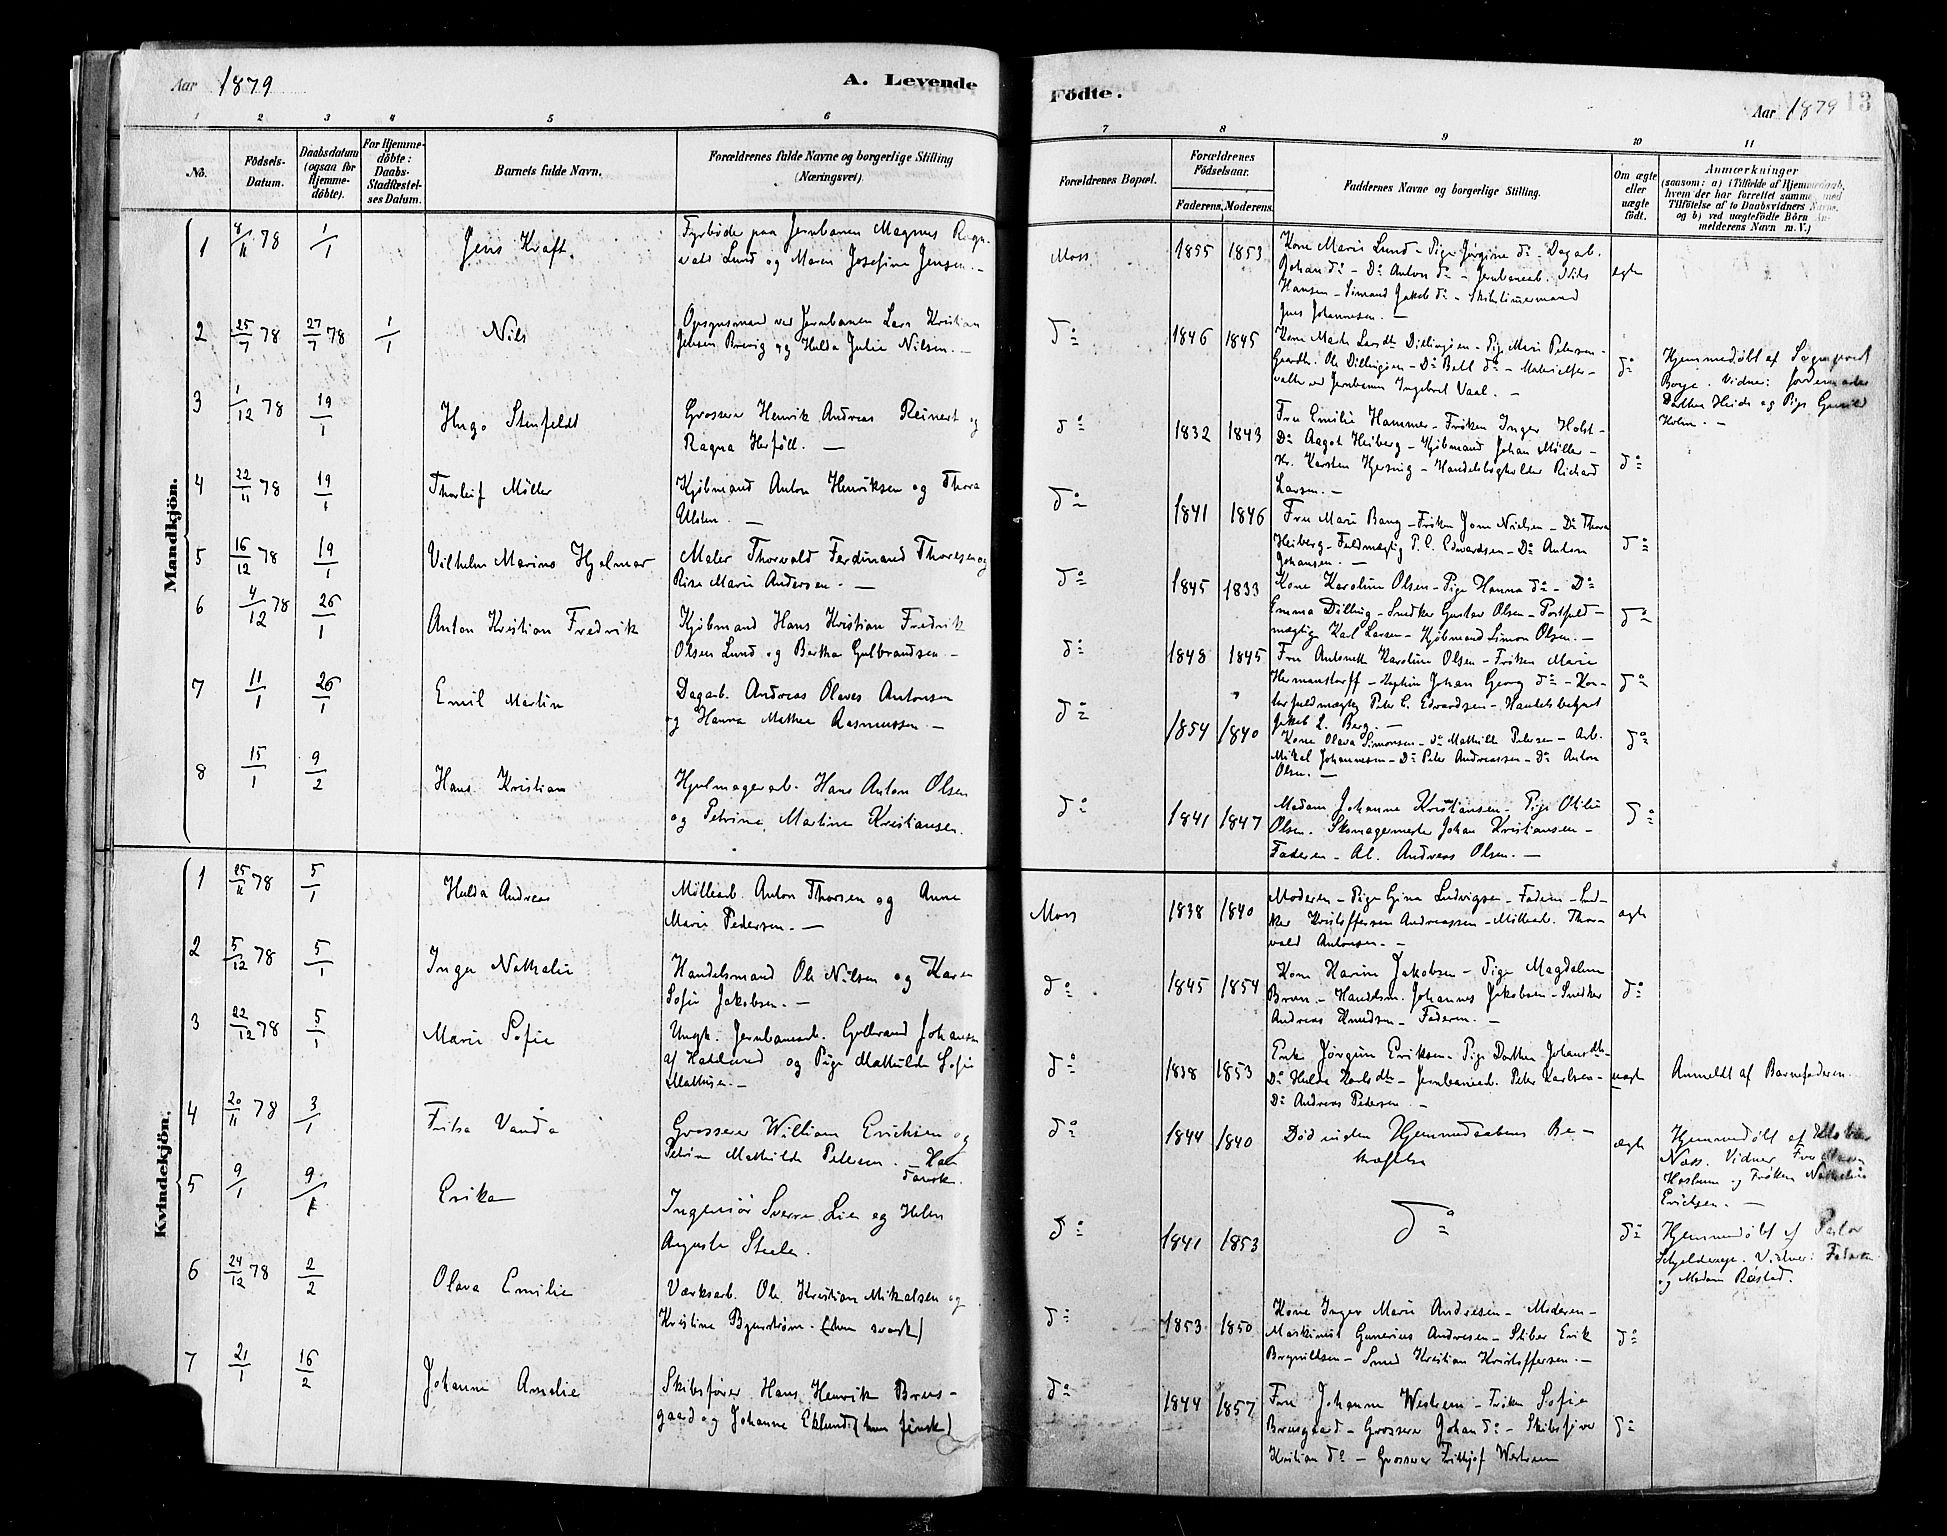 Aar 1879
A. Levende
Födte.
Aar 1879
13
1 2 3 4 5 6
7 8 9 10 11
No.
Födsels-
Datum.
Daabsdatum
(ogsaa for
Hjemme-
döbte).
For Hjemme-
döbte:
Daabs-
Stadfæstel-
ses Datum.
Barnets fulde Navn.
Forældrenes fulde Navne og borgerlige Stilling
(Næringsvei).
Forældrenes Bopæl.
Forældrenes
Födselsaar.
Faderens. Moderens.
Faddernes Navne og borgerlige Stilling.
Om ægte
eller
uægte
født.
Anmærkninger
(saasom: a) i Tilfælde af Hjemmedaab,
hvem der har forrettet samme, med
Tilföielse af to Daabsvidners Navne,
og b) ved uægtefödte Börn An-
melderens Navn m. V.)
Mandkjön.
1 8/11 78 1/1 Jens Kraft.
Fyrböder paa Jernbanen Magnus Ragn-
vald Lund og Maren Josefine Jensen. —
Moss 1855 1853
Kone Marie Lund – Pige Jörgine do – Dagarb.
Johan do – Do Anton do – Jernbanearb. Nils
Hansen – Sömand Jakob do – Skibstömmermand
Jens Johannesen. —
ægte
2 25/7 78 27/7 78 1/1 Nils
Opsynsmand ved Jernbanen Lars Kristian
Jensen Brevig og Hulda Julie Nilsen. —
do 1846 1845
Gaardb. Ole Dillingöen – Do Batl do – Materialfor-
valter ved Jernbanen Ingebret Vaal. —
do
Hjemmedöbt af Sogneprest
Borge. Vidner: Jordemoder
Dorthea Heide og Pige Gunild
Holm. —
3 1/12 78 19/1 Hugo Stenfeldt
Grosserer Henrik Andreas Reinert og
Ragna Herföll. —
do 1832 1843
Fru Emilie Hammer – Fröken Inger Holst –
Do Aagot Heiberg – Kjöbmand Johan Möller –
Hr. Karsten Hersing – Handelsbogholder Richard
Larsen. —
do
4 22/11 78 19/1 Thorleif Möller
Kjöbmand Anton Henriksen og Thora
Ulsten. —
do 1841 1846
Fru Marie Bang – Fröken Jenn Nielsen – Do Thora
Heiberg – Fuldmægtig P. C. Edvardsen – Do Anton
Johansen. —
do
5 16/12 78 19/1 Vilhelm Marino Hjalmar
Maler Thorvald Ferdinand Thoresen og
Rise Marie Andersen. —
do 1845 1833
Kone Karoline Olsen – Pige Hanna do – Do
Emma Dilling – Snedker Gustav Olsen – Postfuld-
mægtig Karl Larsen – Kjöbmand Simon Olsen. —
do
6 4/12 78 26/1 Anton Kristian Fredrik
Kjöbmand Hans Kristian Fredrik
Olsen Lund og Bertha Gulbrandsen –
do 1848 1845
Fru Antonette Karoline Olsen – Fröken Marie
Hermanstorff – Kaptein Johan Georg do – Kon-
torfuldmægtig Peter C. Edvardsen – Handelsbetjent
Jakob L. Berg. —
do
7 11/1 26/1 Emil Martin
Dagarb. Andreas Olaves Antonsen
og Hanna Mathea Rasmussen. —
do 1854 1840
Kone Olava Simonsen – do Mathilde Petersen – Arb.
Mikal Johannesen – Do Peter Andreassen – do Anton
Olsen. —
do
8 15/1 9/2 Hans Kristian
Hjulmagerarb. Hans Anton Olsen
og Petrine Martine Kristiansen.
do 1841 1847
Madam Johanne Kristiansen – Pige Otilie
Olsen. Skomagermester Johan Kristiansen –
Faderen – Al. Andreas Olsen. —
do
Kvindekjön.
1 25/11 78 5/1 Hulda Andrea
Möllearb. Anton Thorsen og Anne
Marie Pedersen. —
Moss 1838 1840
Moderen – Pige Gina Ludvigsen – Faderen – Sned-
ker Kristoffersen Andreassen – Möllearb. Thor-
vald Antonsen. —
ægte
2 5/12 78 5/1 Inga Nathalie
Handelsmand Ole Nilsen og Karen
Sofie Jakobsen. —
do 1845 1854
Kone Karine Jakobsen – Pige Magdalene
Bruun – Handelsm. Johannes Jakobsen – Snedker
Andreas Knudsen – Faderen. —
do
3 22/12 78 5/1 Marie Sofie
Ungk. Jernbanearb. Gulbrand Johansen
af Hadeland og Pige Mathilde Sofie
Mathisen. —
do 1838 1853
Enke Jörgine Eriksen – Pige Dorthea Johansdtr –
Do Hulda Karlsdtr – Jernbanearb. Peter Karlsen –
Do Andreas Pedersen
uægte
Anmeldt af Barnefaderen.
4 20/11 78 3/1 Fritza Vanda
Grosserer William Erichsen og
Petrine Mathilde Petersen. – Han
Dansk.
do 1844 1840
Död inden Hjemmedaabens Be-
kræftelse
ægte
Hjemmedöbt af
Næss. Vidner Fru
og Fröken Nathalie
Erichsen. —
5 9/1 9/1 Erika
Ingeniör Sverre Lie og Helen
Augusta Steele.
do 1841 1853
do
do
Hjemmedöbt af Pastor
Schjelderup. Vidner: Faderen
og Madam Röstad.
6 24/12 78 2/2 Olava Emilie
Værksarb. Ole Kristian Mikalsen og
Kristine Bjurström. (hun svensk)
do 1853 1850
Kone Inger Marie Andresen – Moderen –
Maskinist Gunerius Andresen – Stiber Erik
Bergvillsen – Smed Kristian Kristoffersen. —
do
7 21/1 16/2 Johanne Amalie
Skibsförer Hans Henrik Breus-
gaard og Johanne Eklund (hun finsk)
do 1844 1857
Fru Johanne Westreen – Fröken Sofie
Breusgaard – Grosserer Johan do – Skibsförer
Kristian do – Grosserer Frithjof Westreen
do